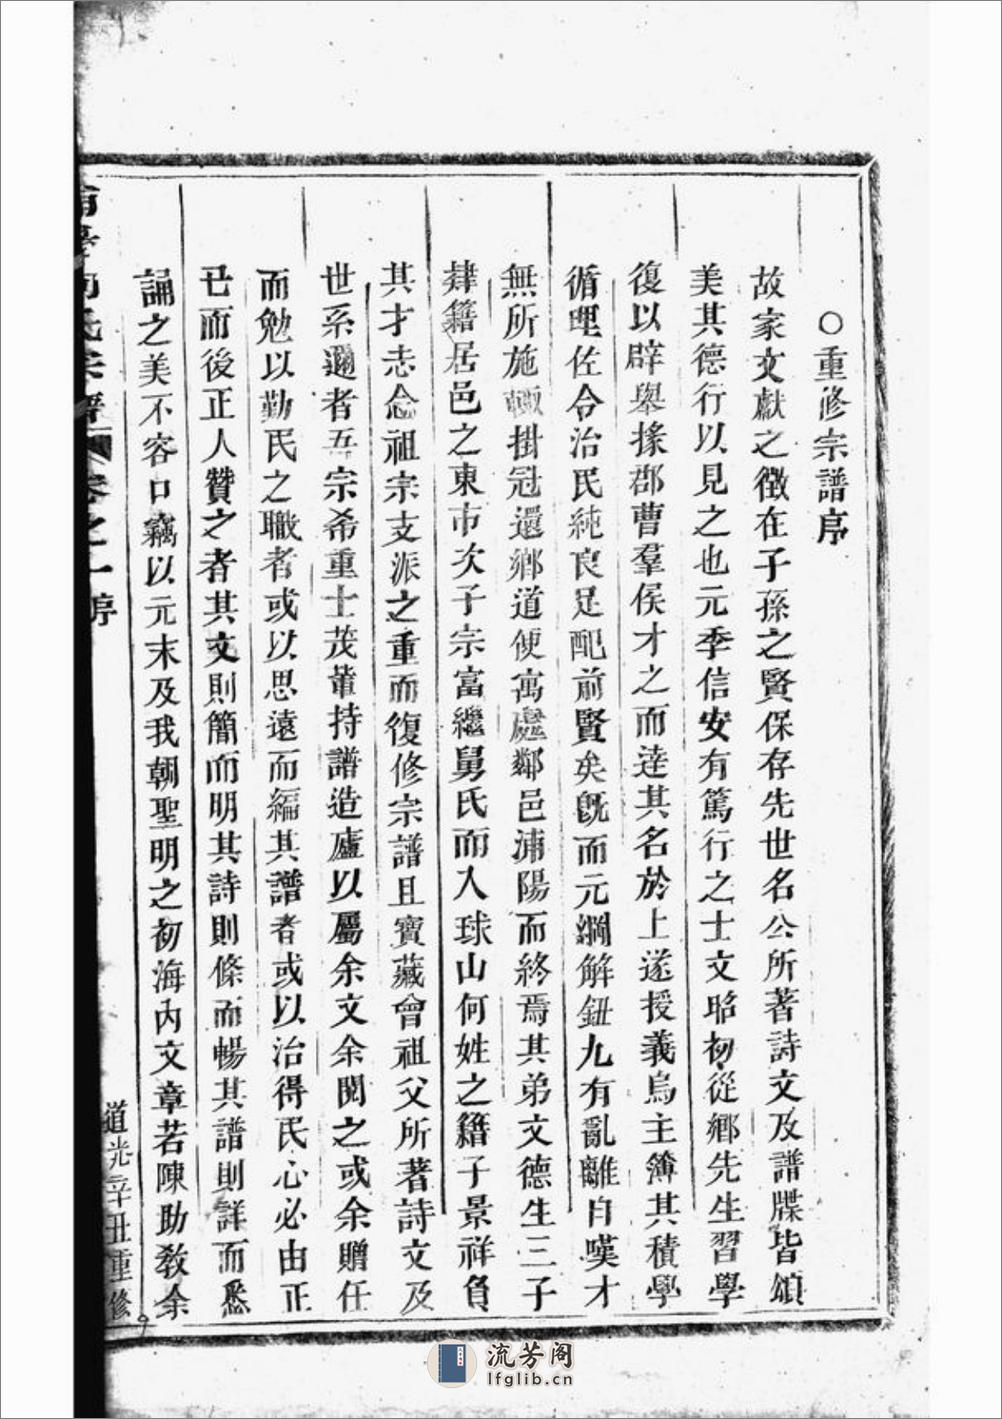 ○重修宗譜序
故家文獻之徵在子孫之賢保存先世名公所著詩文及譜牒皆頌
美其德行以見之也元季信安有篤行之士文昭初從鄉先生習學
復以辟舉掾郡曹羣侯才之而逹其名於上遂授義烏主簿其積學
循理佐令治民純良足配前賢矣旣而元綱解鈕九有亂離自嘆才
無所施輙掛冠還鄉道便寓處鄰邑浦陽而終焉其弟文德生三子
肄籍居邑之東市次子宗富繼舅氏而入球山何姓之籍子景祥負
其才志念祖宗支派之重而復修宗譜且寶藏會祖父所著詩文及
世系邇者吾宗希重士茂董持譜造廬以屬余文余閱之或余贈任
而勉以勤民之職者或以思遠而編其譜者或以治得民心必由正
已而後正人贊之者其文則簡而明其詩則條而暢其譜則詳而悉
誦之美不容口竊以元末及我朝聖明之初海內文章若陳助教余
氏宗譜 卷之一 序
道光辛丑重修
流芳阁
lfglib.cn